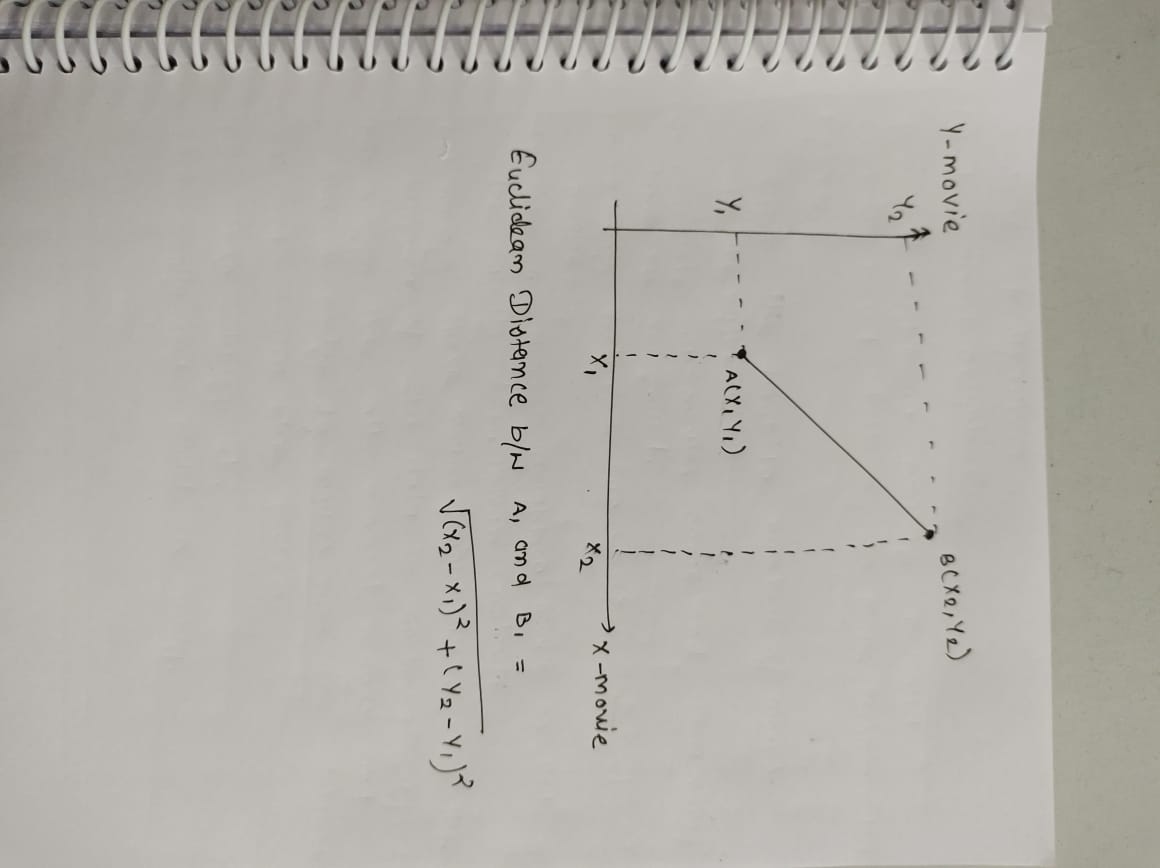 Y-movie
Y₂
B(X₂,Y₂)
Y₁
A(X₁Y₁)
X₁
X₂
X-movie
Euclidean Distance b/N A, and B₁ =
√(X₂-X₁)² + (Y₂-Y₁)²